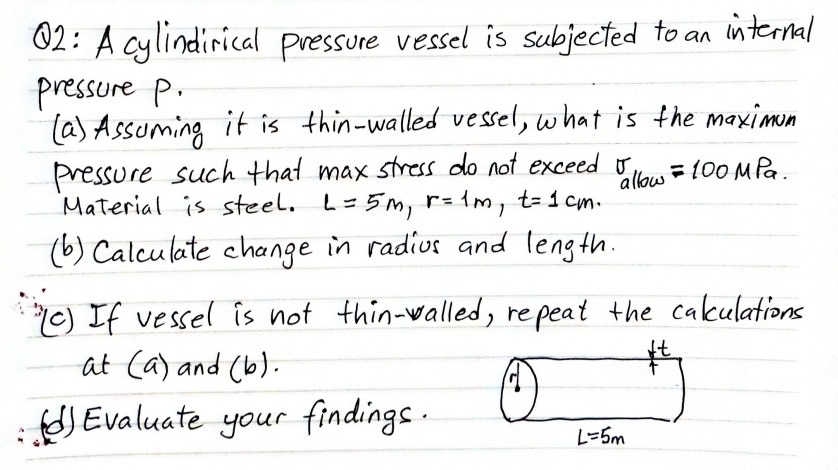 Q2: A cylindirical pressure vessel is subjected to an internal
pressure p.
(a) Assuming it is thin-walled vessel, what is the maximum
pressure such that max stress do not exceed σallow = 100 MPa.
Material is steel. L = 5m, r = 1m, t = 1 cm.
(b) Calculate change in radius and length.
(c) If vessel is not thin-walled, repeat the calculations
at (a) and (b).
(d) Evaluate your findings.
t
r
L=5m